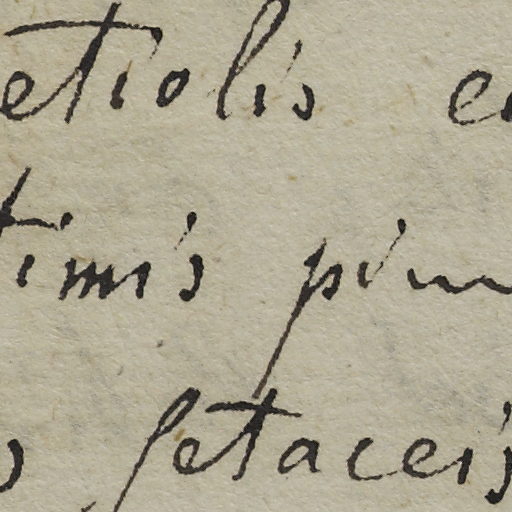 etiolis e
timis pin
s setaceis